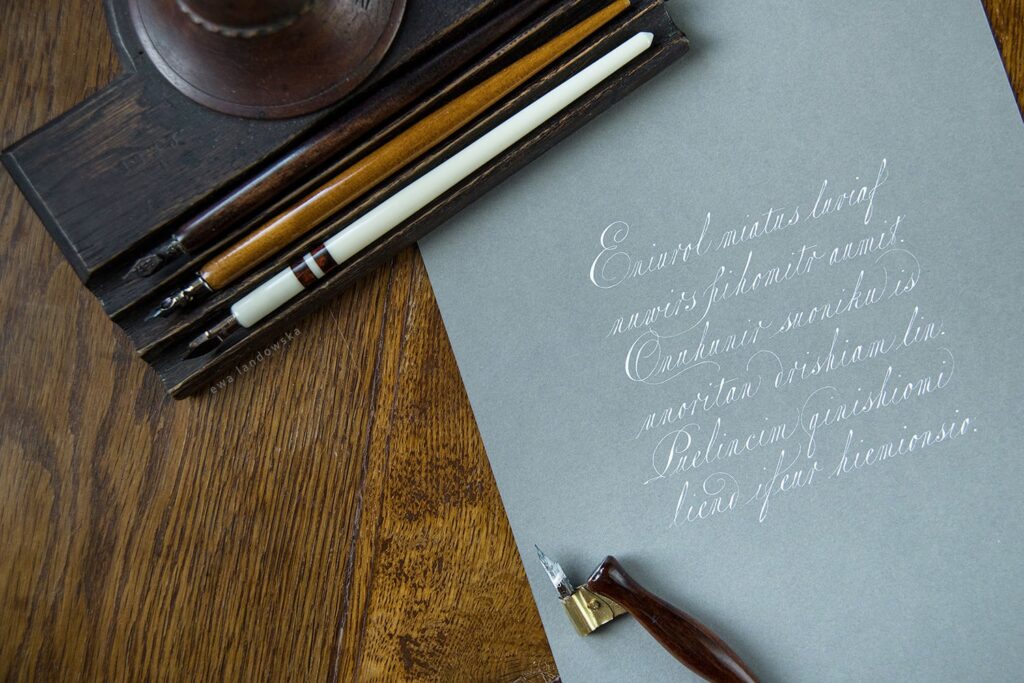 ewa landowska
Eniurol miatus luviaf
nuwirs fihomitr aumit.
Onuhunir suoniku is
unoritan drishiam lin.
Puelincim ginishiomi
liend ifeur hiemionsio.